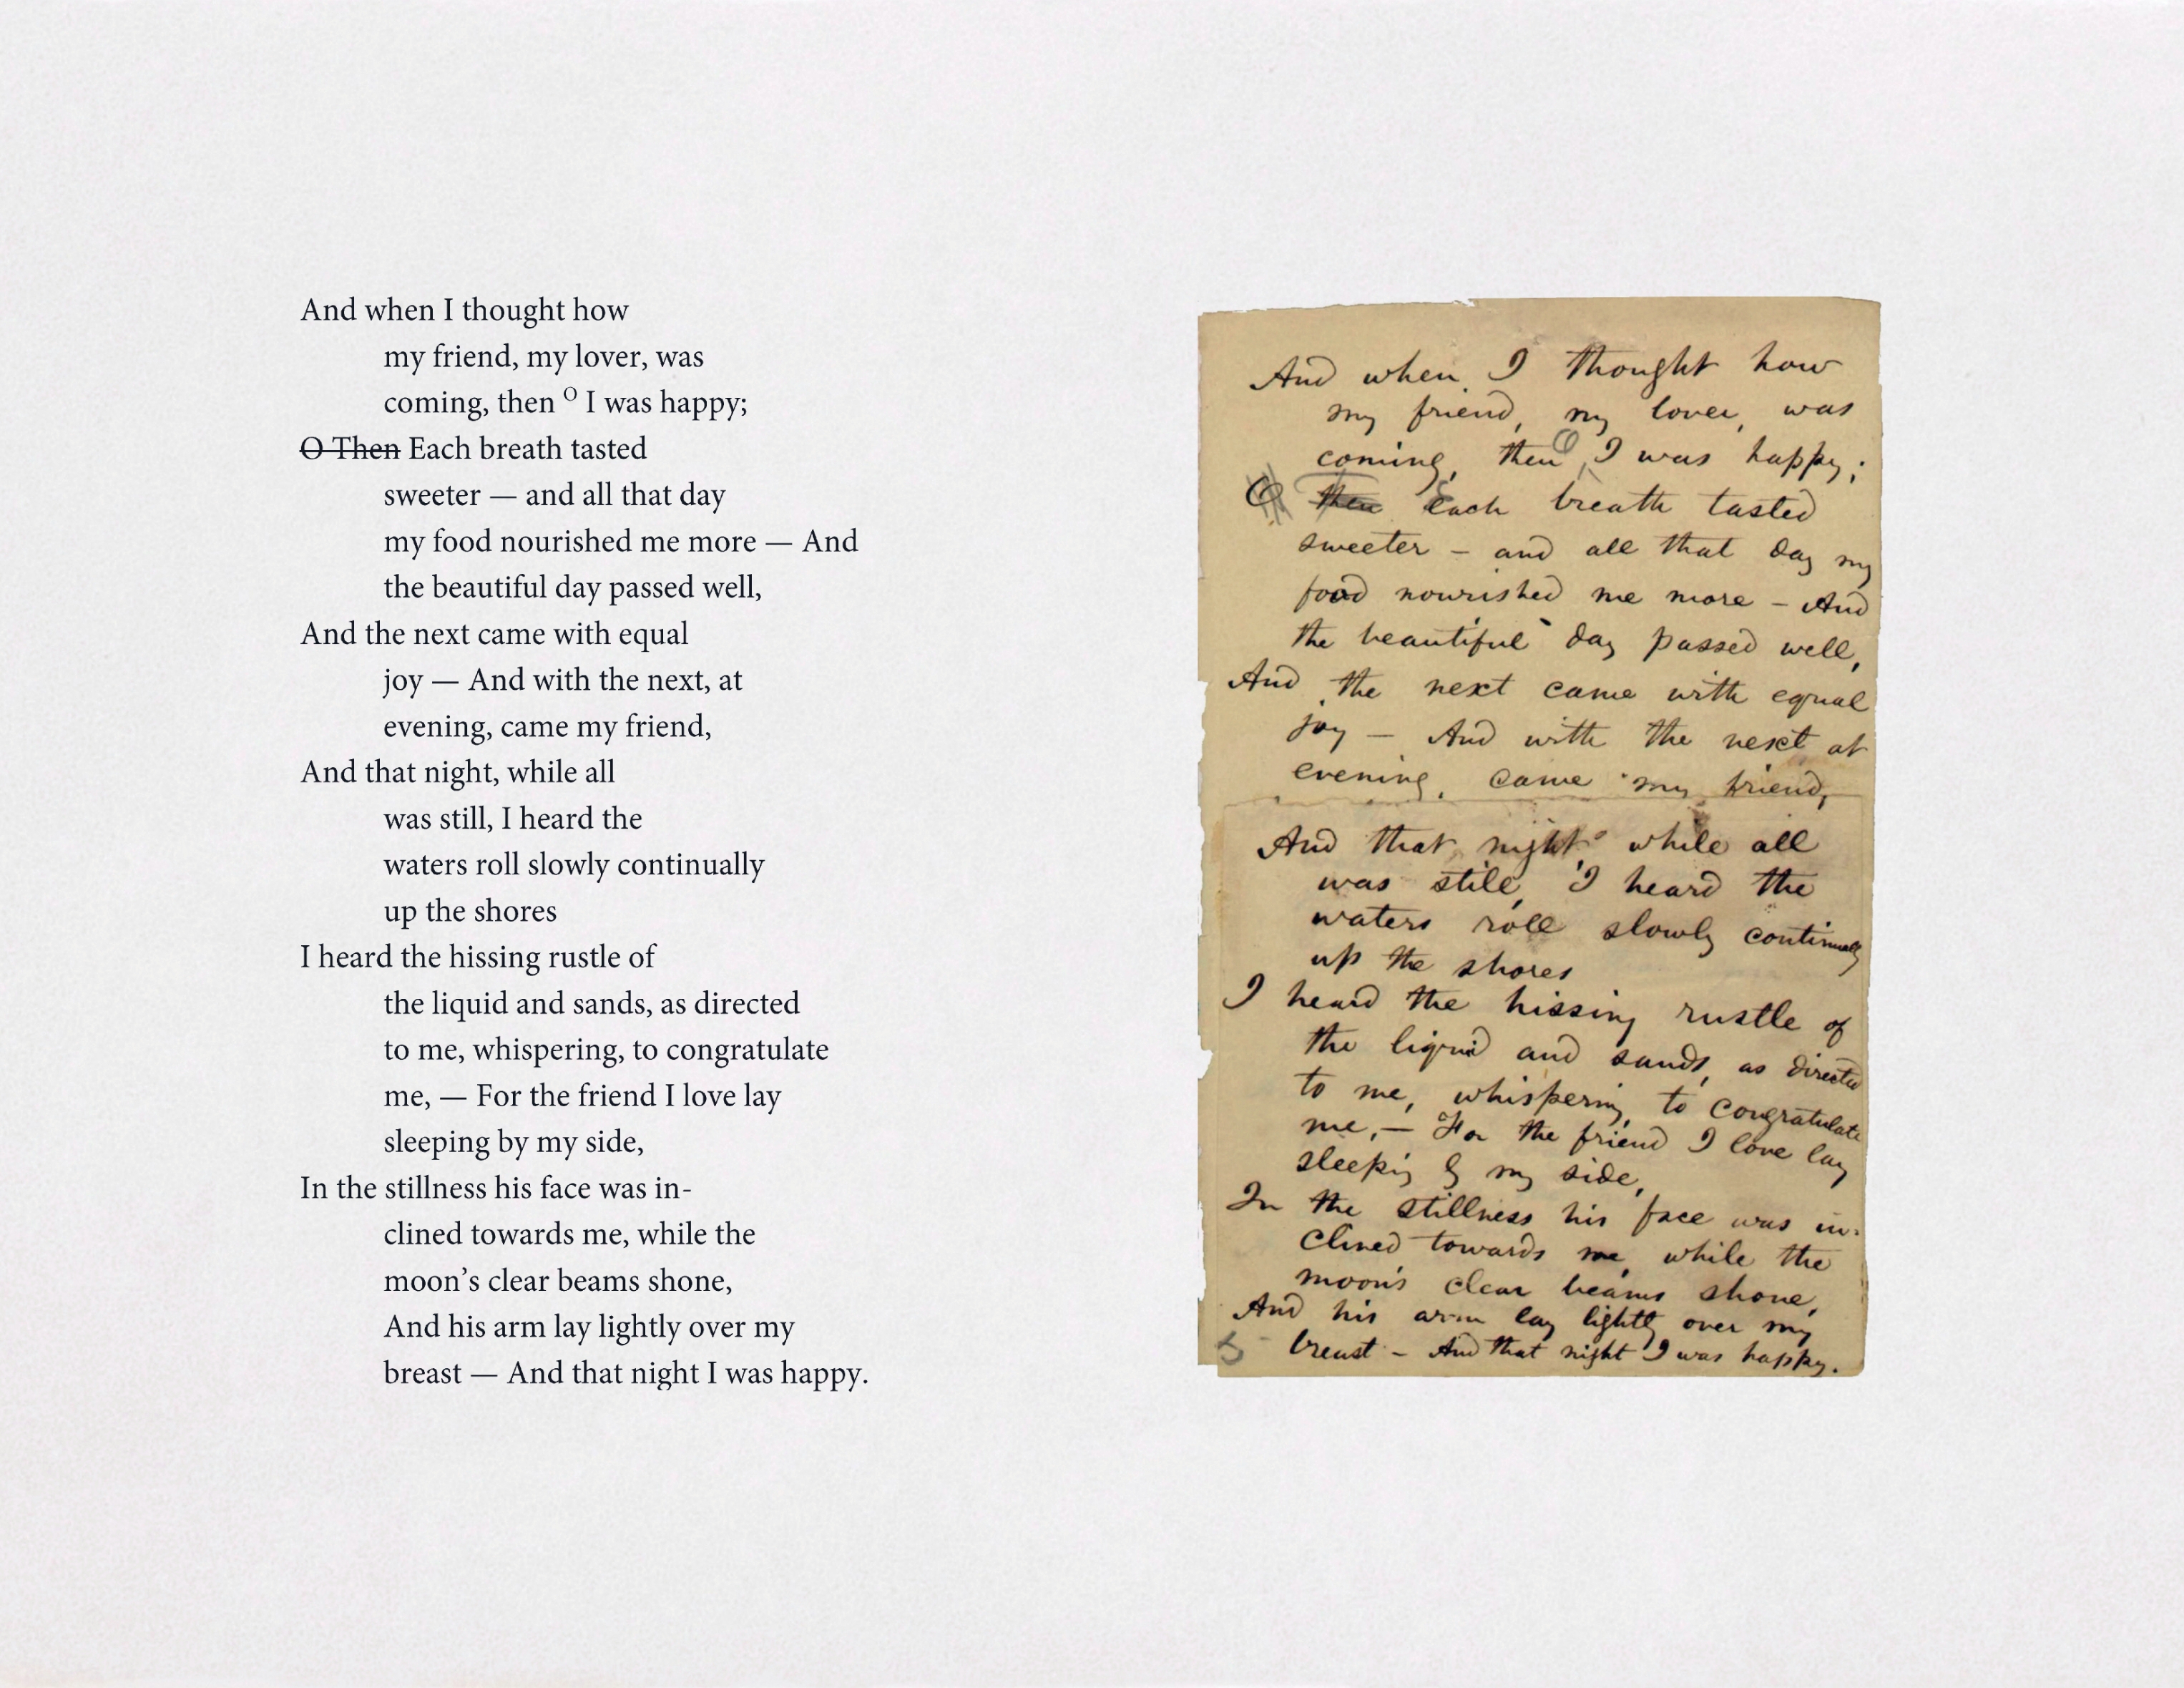 And when I thought how
my friend, my lover, was
coming, then O I was happy;
O Then Each breath tasted
sweeter — and all that day
my food nourished me more — And
the beautiful day passed well,
And the next came with equal
joy — And with the next, at
evening, came my friend,
And that night, while all
was still, I heard the
waters roll slowly continually
up the shores
I heard the hissing rustle of
the liquid and sands, as directed
to me, whispering, to congratulate
me, — For the friend I love lay
sleeping by my side,
In the stillness his face was in-
clined towards me, while the
moon’s clear beams shone,
And his arm lay lightly over my
breast — And that night I was happy.
And when I thought how
my friend, my lover, was
coming, then O I was happy;
O then Each breath tasted
sweeter – and all that day my
food nourished me more – And
the beautiful day passed well,
And the next came with equal
joy – And with the next, at
evening, came my friend,
And that night, while all
was still, I heard the
waters roll slowly continually
up the shores
I heard the hissing rustle of
the liquid and sands, as directed
to me, whispering, to congratulate
me, – For the friend I love lay
sleeping by my side,
In the stillness his face was in-
clined towards me, while the
moon's clear beams shone,
And his arm lay lightly over my
breast – And that night I was happy.